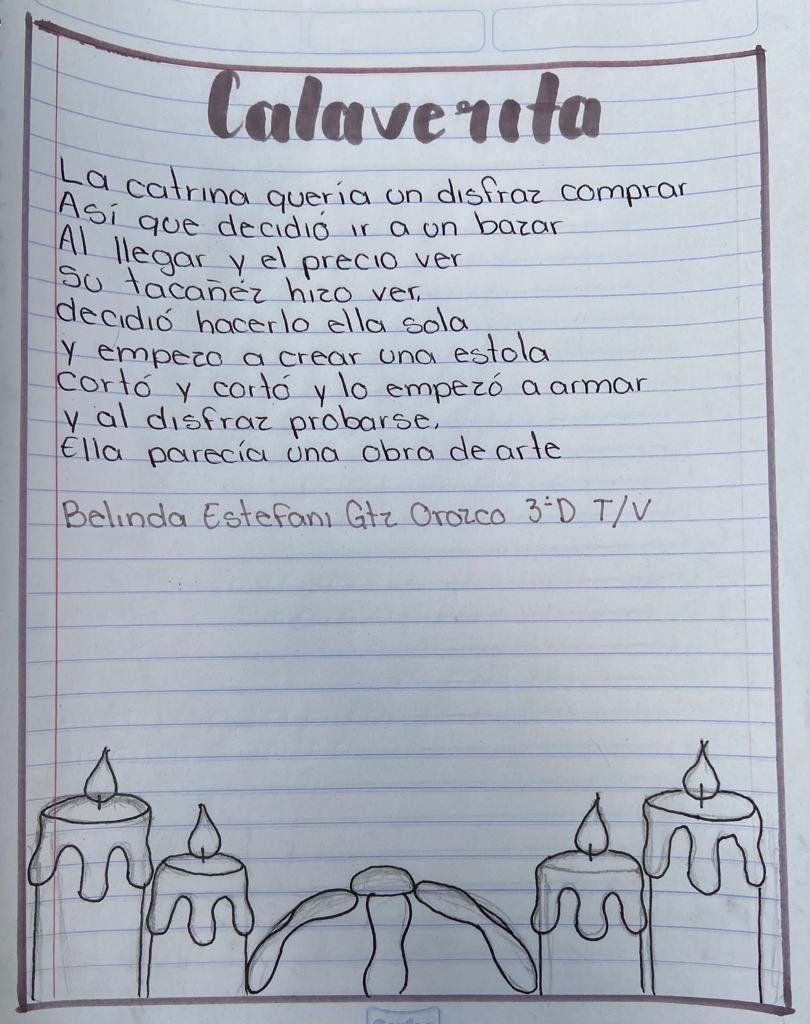 Calaverita
La catrina quería un disfraz comprar
Así que decidió ir a un bazar
Al llegar y el precio ver
su tacañéz hizo ver,
decidió hacerlo ella sola
y empezo a crear una estola
cortó y cortó y lo empezó a armar
y al disfraz probarse,
Ella parecía una obra de arte
Belinda Estefani Gtz Orozco 3°D T/V